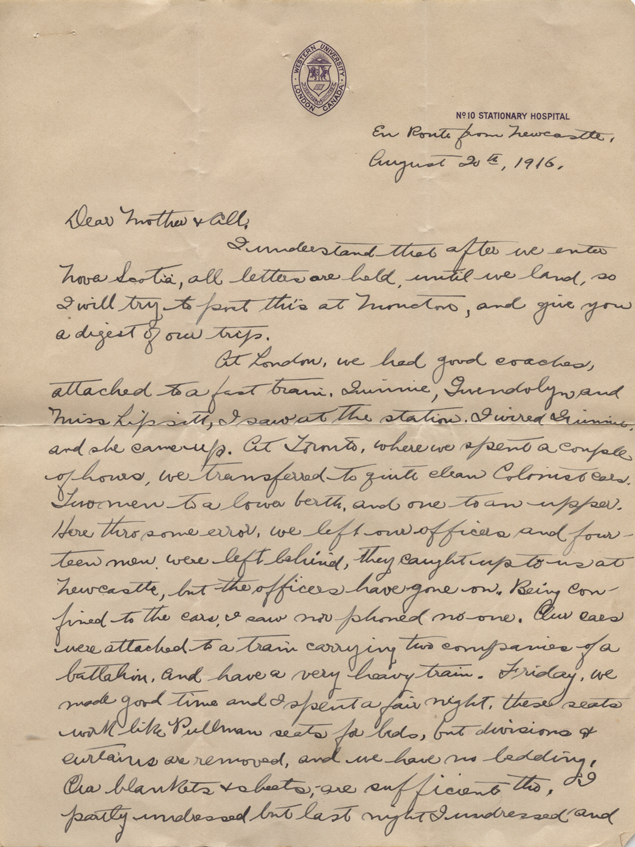 WESTERN UNIVERSITY
LONDON CANADA
Nº 10 STATIONARY HOSPITAL
En Route from Newcastle,
August 20th, 1916.
Dear Mother & All;
I understand that after we enter
Nova Scotia, all letters are held, until we land, so
I will try to post this at Moncton, and give you
a digest of our trip.
At London, we had good coaches,
attached to a fast train. Winnie, Gwendolyn and
Miss Lipsitt, I saw at the station. I wired Winnie,
and she came up. At Toronto, where we spent a couple
of hours, we transferred to quite clean Colonist cars.
Two men to a lowa berth, and one to an upper.
Here thro some error, we left our officers and four-
teen men were left behind, they caught up to us at
Newcastle, but the officers have gone on. Being con-
fined to the cars, I saw nor phoned no-one. Our cars
were attached to a train carrying two companies of a
battalion, and have a very heavy train. Friday, we
made good time and I spent a fair night, these seats
work like Pullman seats for beds, but divisions &
curtains are removed, and we have no bedding,
Our blankets & sheets, are sufficient tho, I
partly undressed but last night I undressed and